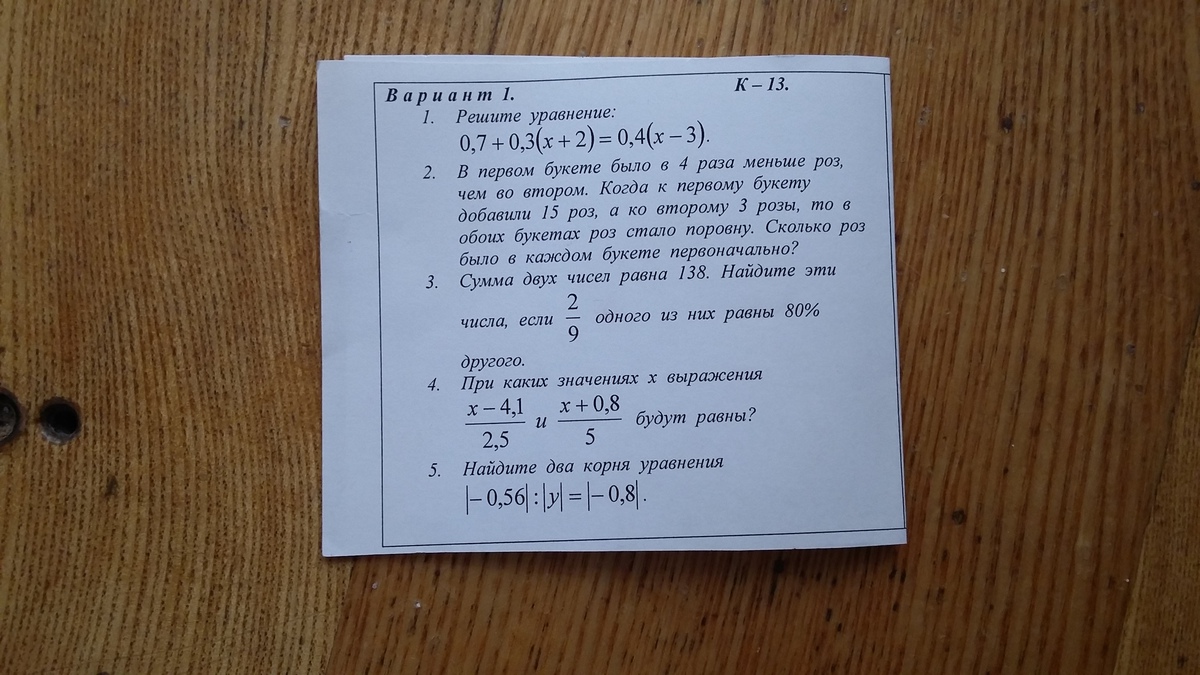 Вариант 1. К – 13.
1. Решите уравнение:
0,7 + 0,3(x + 2) = 0,4(x − 3).
2. В первом букете было в 4 раза меньше роз,
чем во втором. Когда к первому букету
добавили 15 роз, а ко второму 3 розы, то в
обоих букетах роз стало поровну. Сколько роз
было в каждом букете первоначально?
3. Сумма двух чисел равна 138. Найдите эти
числа, если 2/9 одного из них равны 80%
другого.
4. При каких значениях x выражения
(x − 4,1)/2,5 и (x + 0,8)/5 будут равны?
5. Найдите два корня уравнения
|− 0,56| : |y| = |− 0,8|.